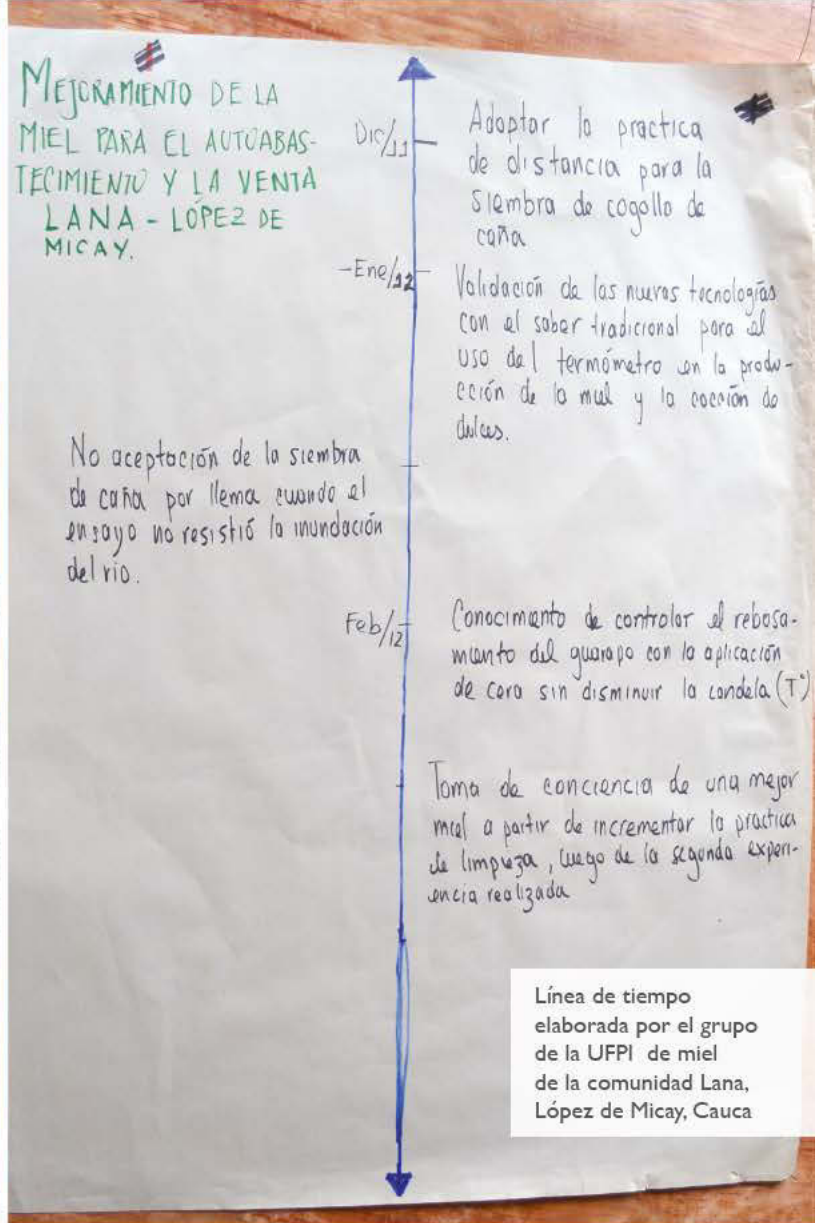 MEJORAMIENTO DE LA
MIEL PARA EL AUTOABAS-
TECIMIENTO Y LA VENTA
LANA - LÓPEZ DE
MICAY.
Dic/11
Adoptar la practica
de distancia para la
siembra de cogollo de
caña
-Ene/12
Validación de las nuevas tecnologías
con el saber tradicional para el
uso del termómetro en la produ-
cción de la miel y la cocción de
dulces.
No aceptación de la siembra
de caña por llema cuando el
ensayo no resistió la inundación
del rio.
Feb/12
Conocimiento de controlar el rebosa-
miento del guarapo con la aplicación
de cera sin disminuir la candela (T°)
Toma de conciencia de una mejor
miel a partir de incrementar la practica
de limpieza, luego de la segunda experi-
encia realizada
Línea de tiempo
elaborada por el grupo
de la UFPI de miel
de la comunidad Lana,
López de Micay, Cauca